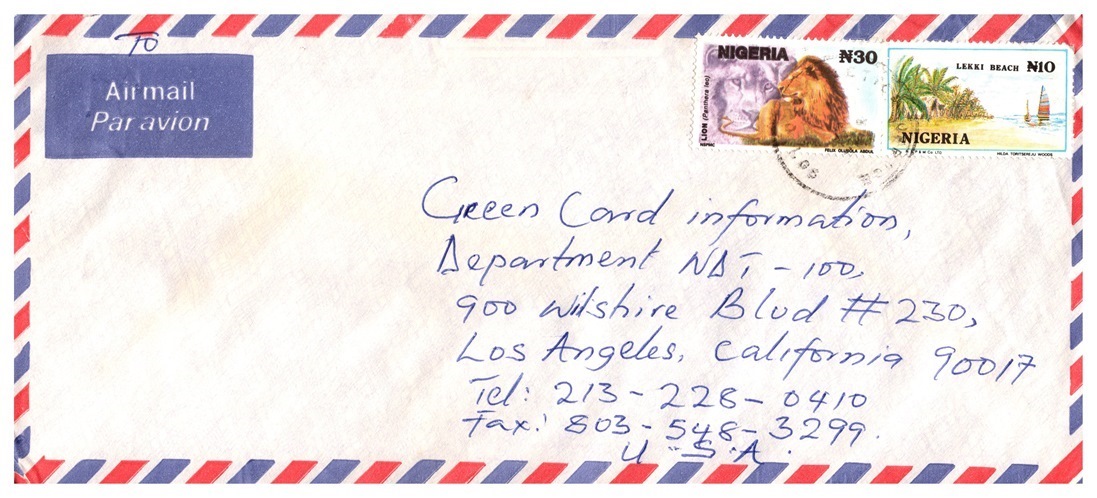 TO
Airmail
Par avion
NIGERIA ₦30
LION (Panthera leo)
NSPMC
FELIX OLUSOLA ABDUL
LEKKI BEACH ₦10
NIGERIA
HILDA TORITSEREJU WOODS
Green Card information,
Department NDT - 100,
900 Wilshire Blvd # 230,
Los Angeles, California 90017
Tel: 213 - 228 - 0410
Fax: 803 - 548 - 3299.
U. S. A.